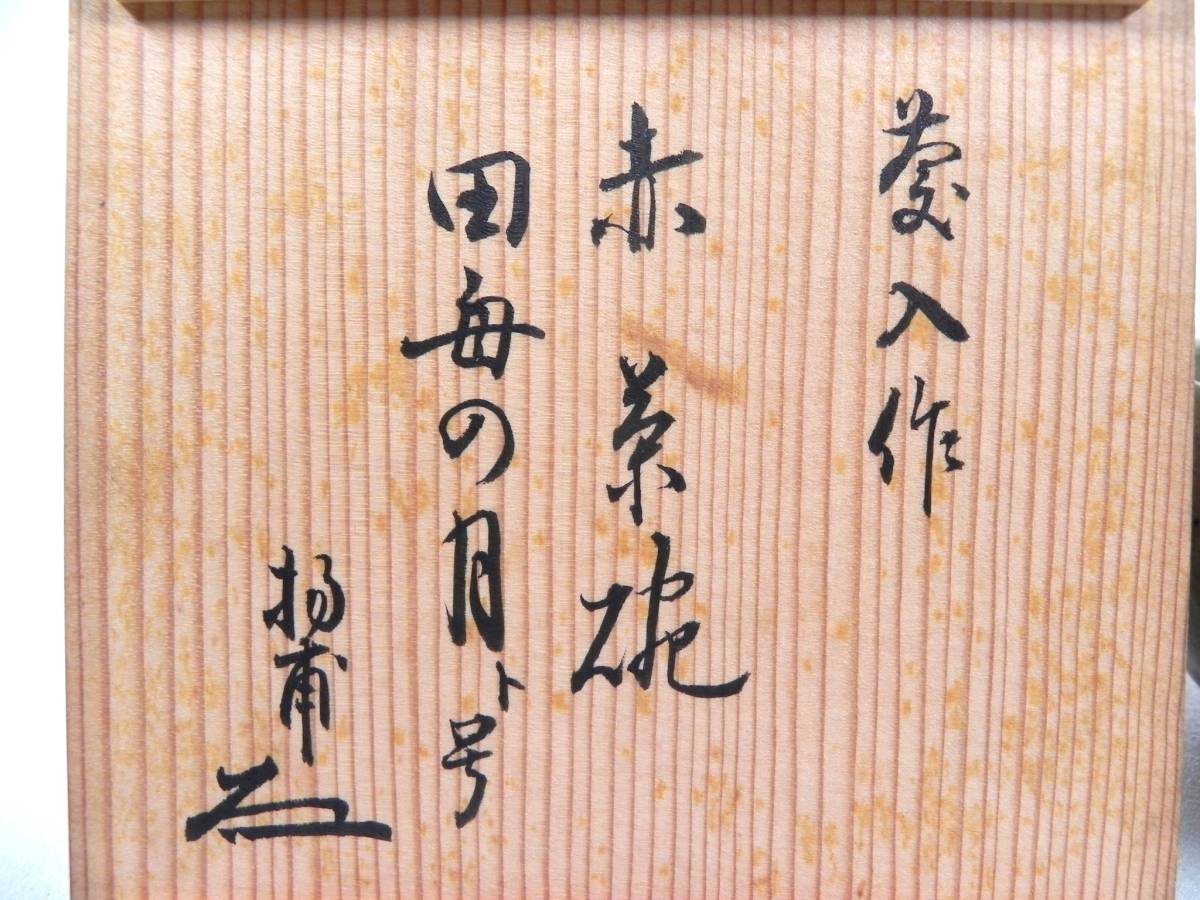 慶入作
赤茶碗
田毎の月ト号
揚甫